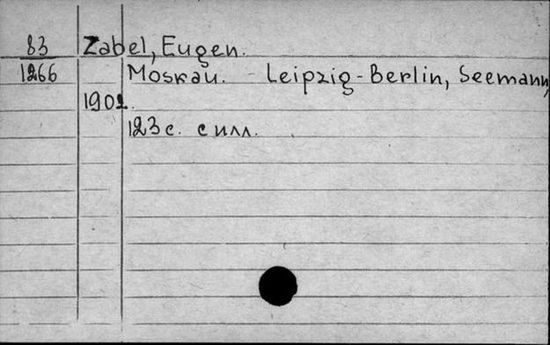 83 Zabel, Eugen.
1266 Moskau. Leipzig-Berlin, Seemann,
1902.
123 с. с илл.